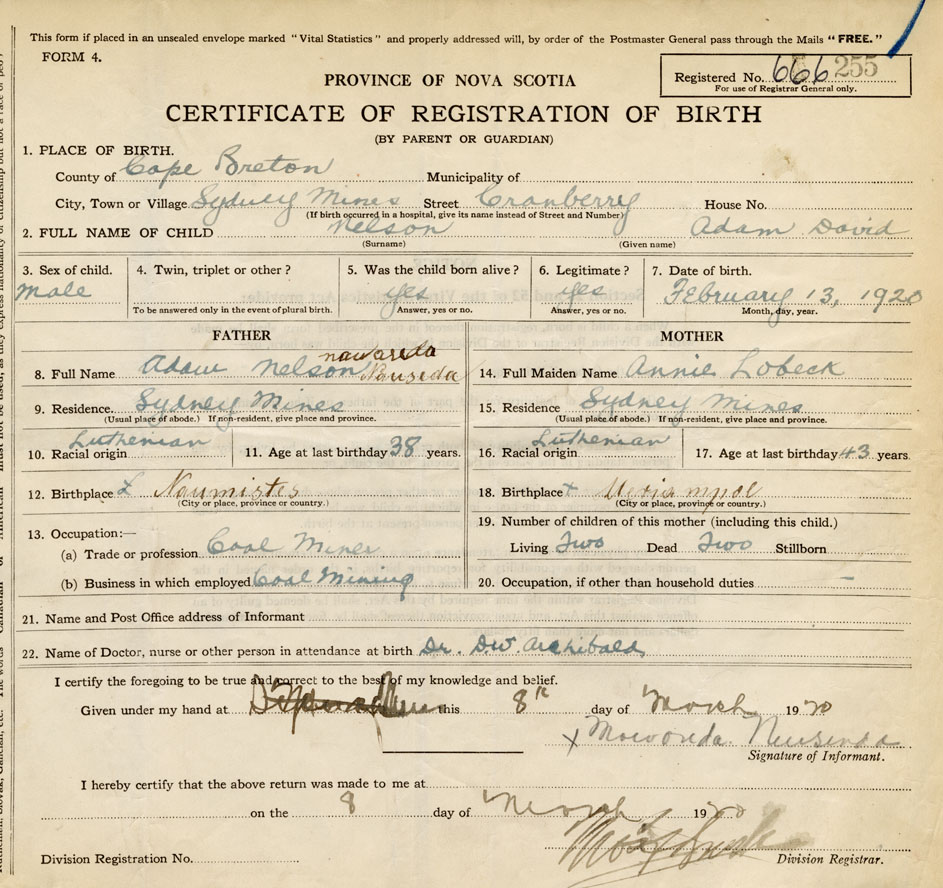 This form if placed in an unsealed envelope marked "Vital Statistics" and properly addressed will, by order of the Postmaster General pass through the Mails "FREE."
FORM 4.
Registered No. 666 255
For use of Registrar General only.
PROVINCE OF NOVA SCOTIA
CERTIFICATE OF REGISTRATION OF BIRTH
(BY PARENT OR GUARDIAN)
1. PLACE OF BIRTH.
County of Cape Breton Municipality of
City, Town or Village Sydney Mines Street Cranberry House No.
(If birth occurred in a hospital, give its name instead of Street and Number)
2. FULL NAME OF CHILD Nelson Adam David
(Surname) (Given name)
3. Sex of child. 4. Twin, triplet or other? 5. Was the child born alive? 6. Legitimate? 7. Date of birth.
Male yes yes February 13, 1920
To be answered only in the event of plural birth. Answer, yes or no. Answer, yes or no. Month, day, year.
FATHER MOTHER
nawareda
8. Full Name Adam Nelson Nauseda 14. Full Maiden Name Annie Lobeck
9. Residence. Sydney Mines 15. Residence Sydney Mines
(Usual place of abode.) If non-resident, give place and province. (Usual place of abode.) If non-resident, give place and province.
10. Racial origin Luthenian 11. Age at last birthday 38 years. 16. Racial origin Luthenian 17. Age at last birthday 43 years.
12. Birthplace Naumistes 18. Birthplace
(City or place, province or country.) (City or place, province or country.)
13. Occupation:— 19. Number of children of this mother (including this child.)
(a) Trade or profession Coal Miner Living Two Dead Two Stillborn
(b) Business in which employed Coal Mining 20. Occupation, if other than household duties –
21. Name and Post Office address of Informant
22. Name of Doctor, nurse or other person in attendance at birth Dr. DW Archibald
I certify the foregoing to be true and correct to the best of my knowledge and belief.
Given under my hand at this 8th day of March 1920
X
Signature of Informant.
I hereby certify that the above return was made to me at
on the 8 day of March 1920
Division Registration No. Division Registrar.